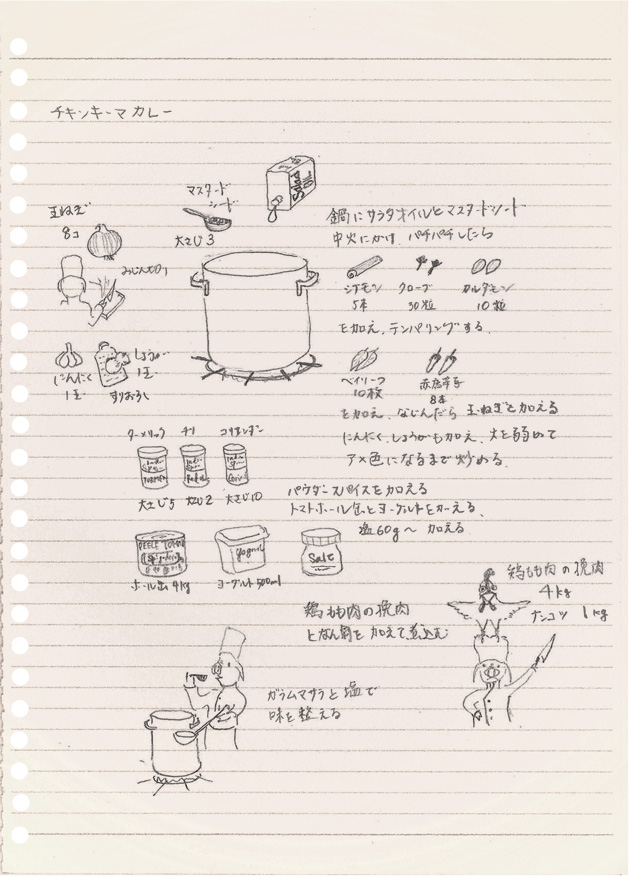 チキンキーマカレー
マスタード
シード
大さじ3
Salad
OIL
玉ねぎ
8コ
みじん切り
にんにく
1玉
しょうが
1玉
すりおろし
鍋にサラダオイルとマスタードシード
中火にかけ パチパチしたら
シナモン クローブ カルダモン
5本 30粒 10粒
を加え、テンパリングする。
ベイリーフ 赤唐辛子
10枚 8本
を加え、なじんだら 玉ねぎを加える
にんにく、しょうがも加え、火を弱めて
アメ色になるまで炒める。
ターメリック チリ コリアンダー
大さじ5 大さじ2 大さじ10
パウダースパイスを加える
トマトホール缶とヨーグルトを加える。
塩60g〜 加える
Yogurt
Salt
ホール缶4kg ヨーグルト500ml
鶏もも肉の挽肉
4kg
ナンコツ 1kg
鶏もも肉の挽肉
となん骨を加えて煮込む
ガラムマサラと塩で
味を整える